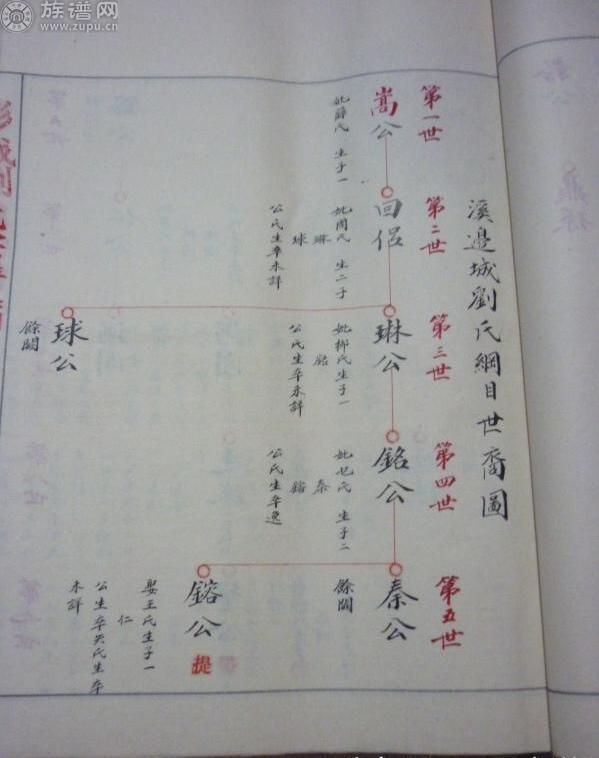 族谱网
www.zupu.cn
溪邊城劉氏綱目世裔圖
第一世
嵩公
妣薛氏 生子一
第二世
回侶
妣周氏 生二子
琳
球
公氏生卒未詳
第三世
琳公
妣柳氏生子一
銘
公氏生卒未詳
球公
餘闕
第四世
銘公
生子二
秦
鎔
公氏生卒逸
第五世
秦公
餘闕
鎔公
提
娶王氏生子一
仁
公生卒失氏生卒
未詳